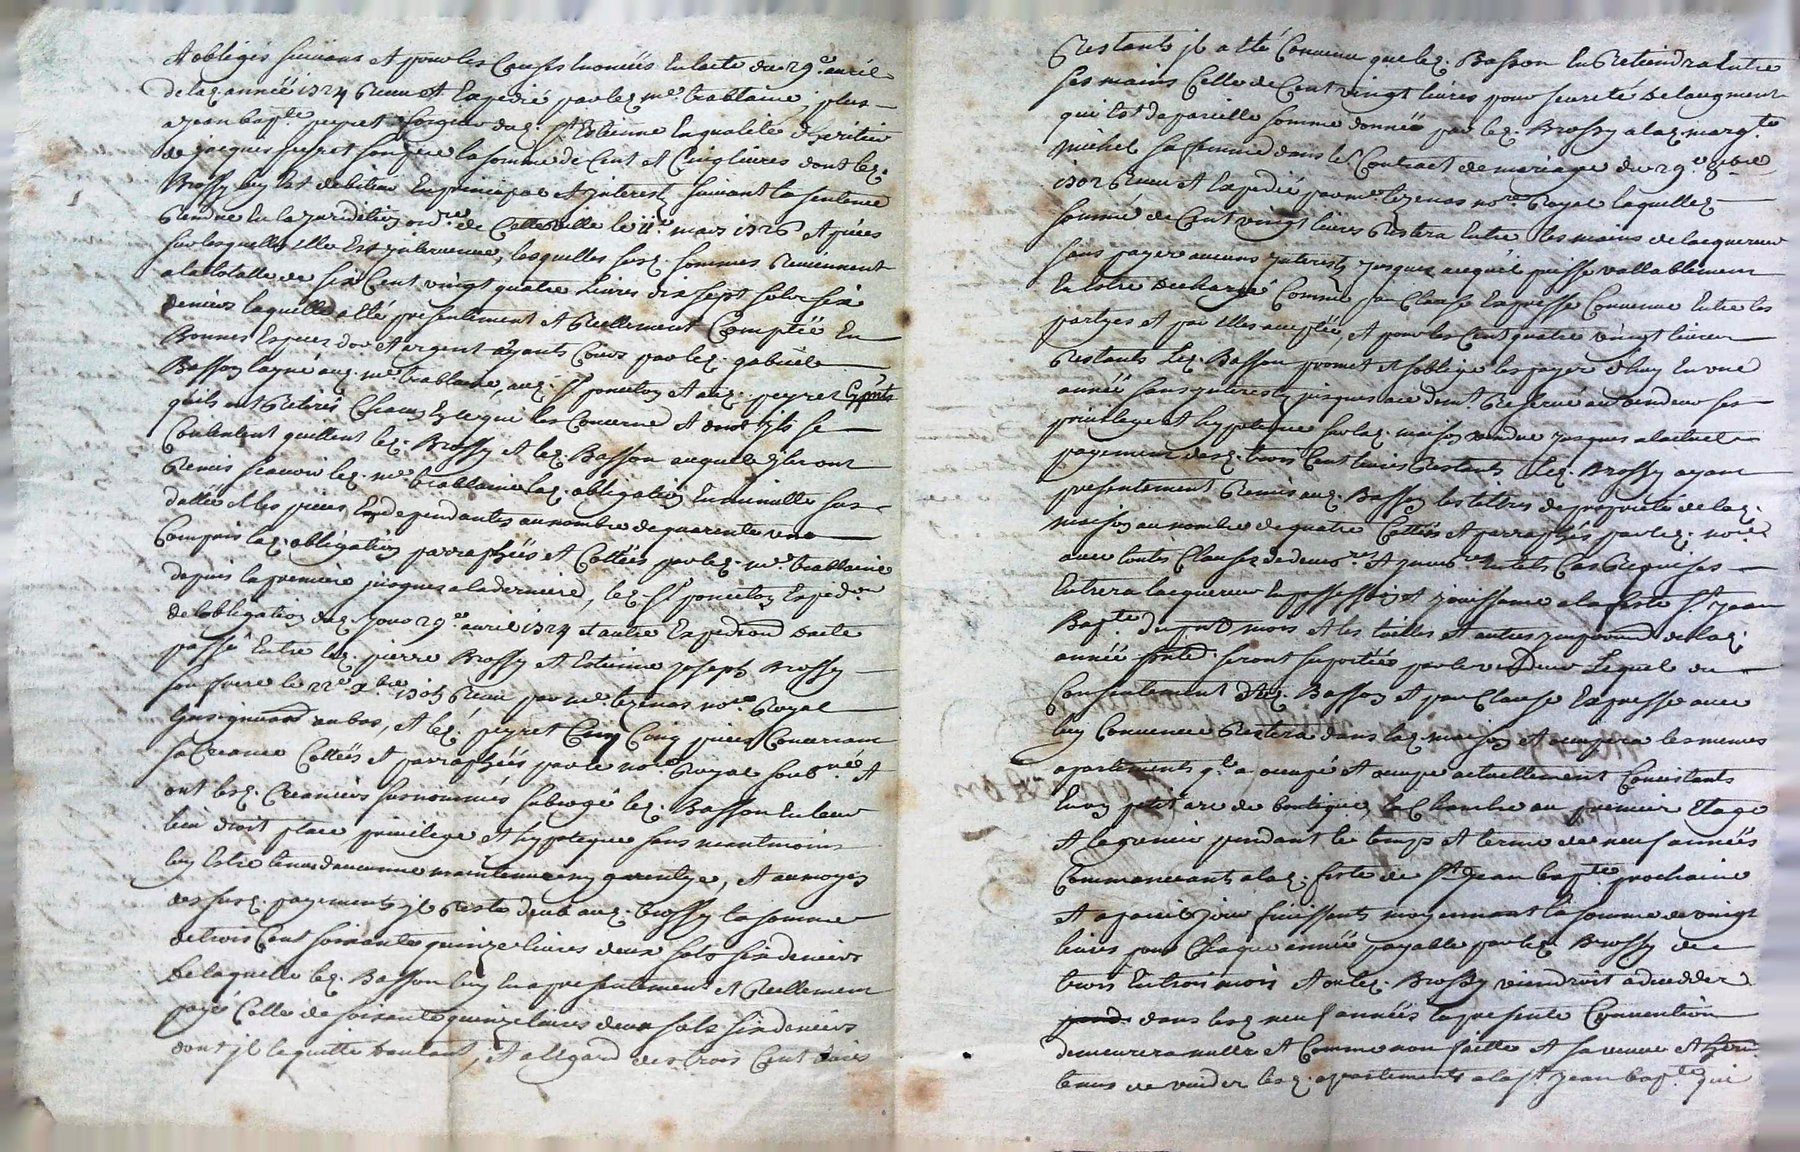 A obligés suivant et pour les causes enoncées en l'acte du 29e avril
de lad. année 1724 receu et expedié par led. me trablaine, plus
a jean bapte peyret dud. st Estienne en qualité d'heritier
de jacques peyret son pere la somme de Cent et Cinq livres dont led.
Brossy luy est debiteur en principal et interest suivant la sentence
rendue en la jurisdiction ordre de le ii mars 1726 A pieces
sur lesquelles elle est intervenue, lesquelles susd. sommes reviennent
a la totalle de six Cent vingt quatre livres dix sept sols six
deniers laquelle a eté presentement et reellement Comptée en
Bonnes Especes d'or et argent ayants Cours par led. gabriel
Basson layné aud. me trablaine, aud. sr ponceton et aud. peyret
quils ont retirés Chacun en ce qui les Concerne et dont ils se
Contentent quittent led. Brossy et led. Basson auquel ils ont
remis scavoir led. me trablaine lad. obligation en minutte sus
dattée et les pieces en dependantes au nombre de quarente une
Compris lad. obligation parraphées et Cottées par led. me trablaine
depuis la premiere jusques a la derniere, led. sr ponceton Expedon
de l'obligation dud. jour 29e avril 1724 et autre Expedition d'acte
passé Entre led. pierre Brossy et Estienne joseph Brossy
son frere le 22e xbre receu par me tezenas nore Royal
soussignant au bas, et led. peyret Cinq pieces Concernant
sa Creance Cottées et parraphées par le nore Royal sousné et
ont lesd. Creanciers susnommés subrogé led. Basson en leur
lieu droit place privilege et hypoteque sans neantmoins
luy Estre tenus d'aucunne maintenue ny garentye, et au moyen
des susd. payements il reste deub aud. brossy la somme
de trois Cent soixante quinze livres deux sols six deniers
de laquelle led. Basson luy en a presentement et reellement
payé Celle de soixante quinze livres deux sols six deniers
dont il le quitte d'autant, et a l'egard des trois Cent livres
restants il a eté Convenu que led. Basson en retiendra entre
ses mains Celle de Cent vingt livres pour seureté de laugment
qui est de pareille somme donnée par led. Brossy a lad. margte
michel sa femme dans le Contract de mariage du 29e 8bre
1702 receu et Expedié par me tezenas nore Royal laquelle
somme de Cent vingt livres restera entre les mains de lacquereur
sans payer aucuns interests jusques a ce quil puisse vallablement
en estre dechargé Comme par Clause Expresse Convenue Entre les
partyes et par elles acceptée, et pour les Cent quatre vingt livres
restants led. Basson promet et soblige les payer d'huy en une
année sans interests jusques a ce dont reserve au vendeur ses
privilege et hypoteque sur lad. maison vendue jusques a l'actuel
payement desd. trois Cent livres restants led. Brossy ayant
presentement remis aud. Basson les tittres de proprieté de lad.
maison au nombre de quatre Cottées et parraphés par led. nore
avec toutes Clauses de devers. et en tels Cas requises
Entrera lacquereur en possession et jouissance a la feste st jean
Bapte du pnt mois et les tailles et autres impositions de lad.
année seront suportées par le vendeur Lequel du
Consentement dud. Basson et par Clause Expresse avec
luy Convenue restera dans lad. maison et occupera les memes
apartements ql a occupé et occupe actuellement Consistants
en un petit arc de boutique, la Chambre au premier Etage
et le grenier pendant le temps et terme de neuf années
Commancants a lad. feste de st jean bapte prochaine
et a pareil jour finissants moyennant la somme de vingt
livres pour Chaque année payable par led. Brossy de
trois en trois mois et ou led. Brossy viendroit a decedder
dans lesd. neuf années la presente Convention
demeurera nulle et Comme non faitte et sa veuve et
tenus de vuider lesd. appartements a la st jean bapte qui